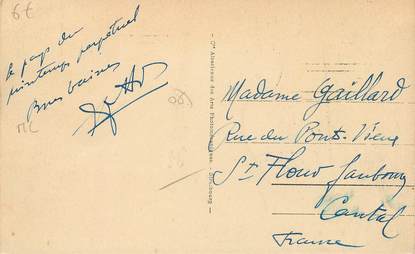 6€
Le pays du
printemps perpétuel
Bons baisers
MC
Cie Alsacienne des Arts Photomécaniques, Strasbourg
Madame Gaillard
Rue du Pont-Vieux
St Flour faubourg
Cantal
France